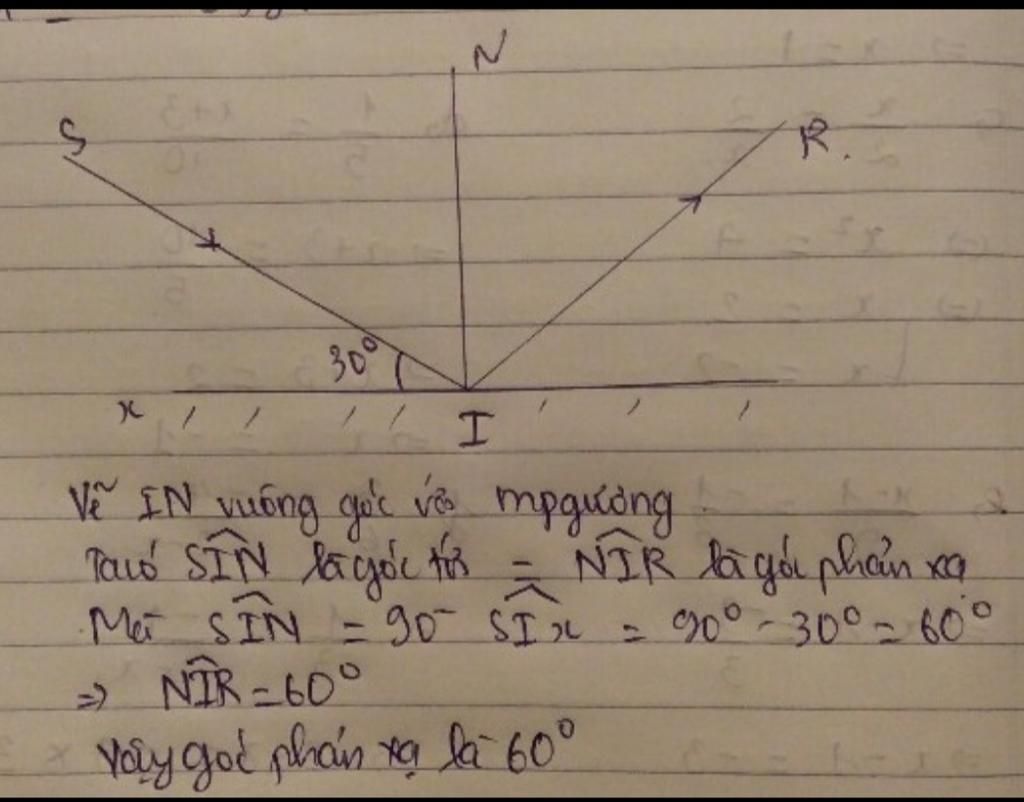 N
S
R.
30°
x
I
Vẽ IN vuông góc với mpgương
Ta có SÎN là góc tới = NÎR là góc phản xạ
Mà SÎN = 90 - SÎx = 90° - 30° = 60°
=> NÎR = 60°
Vậy góc phản xạ là 60°